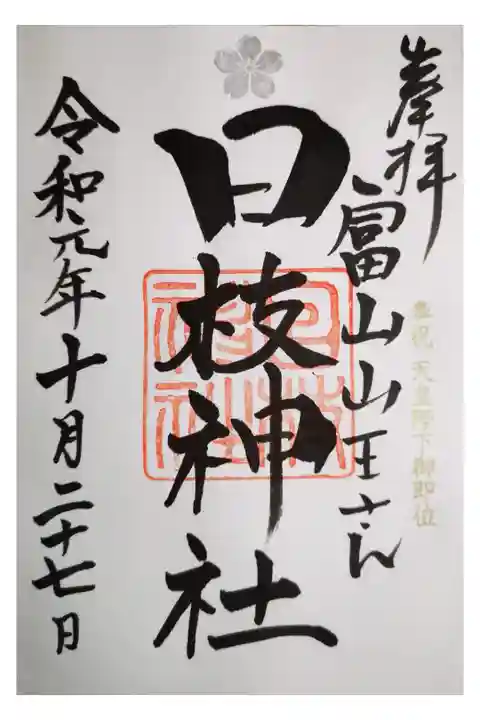 奉拝
富山山王さん
奉祝 天皇陛下御即位
日枝神社
令和元年十月二十七日